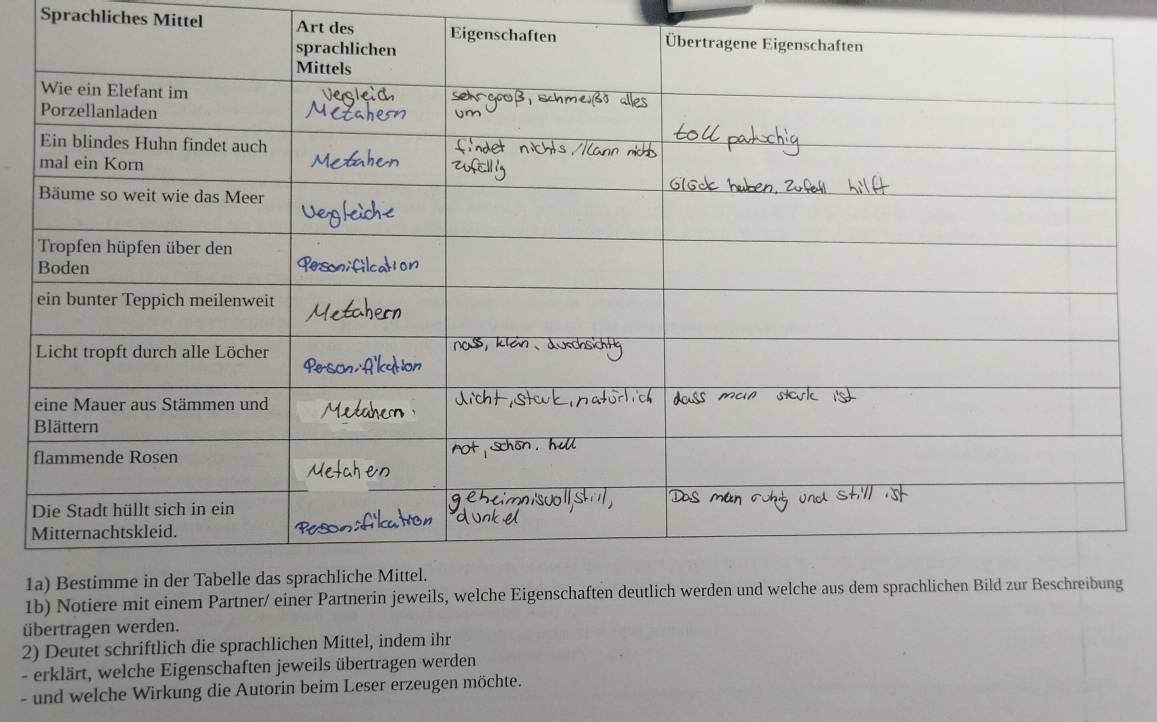 Sprachliches Mittel
Art des
sprachlichen
Mittels
Eigenschaften
Übertragene Eigenschaften
Wie ein Elefant im
Porzellanladen
Vergleich
Metahern
sehr groß, schmeißt alles
um
toll patschig
Ein blindes Huhn findet auch
mal ein Korn
Metahern
findet nichts / kann nichts
zufällig
Glück haben, Zufall hilft
Bäume so weit wie das Meer
Vergleiche
Tropfen hüpfen über den
Boden
Personifikation
ein bunter Teppich meilenweit
Metahern
Licht tropft durch alle Löcher
Personifikation
nass, klein, durchsichtig
eine Mauer aus Stämmen und
Blättern
Metahern.
dicht, stark, natürlich
dass man stark ist
flammende Rosen
Metahern
rot, schön, hell
Die Stadt hüllt sich in ein
Mitternachtskleid.
Personifikation
geheimnisvoll, still,
dunkel
Das man ruhig und still ist
1a) Bestimme in der Tabelle das sprachliche Mittel.
1b) Notiere mit einem Partner/ einer Partnerin jeweils, welche Eigenschaften deutlich werden und welche aus dem sprachlichen Bild zur Beschreibung
übertragen werden.
2) Deutet schriftlich die sprachlichen Mittel, indem ihr
- erklärt, welche Eigenschaften jeweils übertragen werden
- und welche Wirkung die Autorin beim Leser erzeugen möchte.